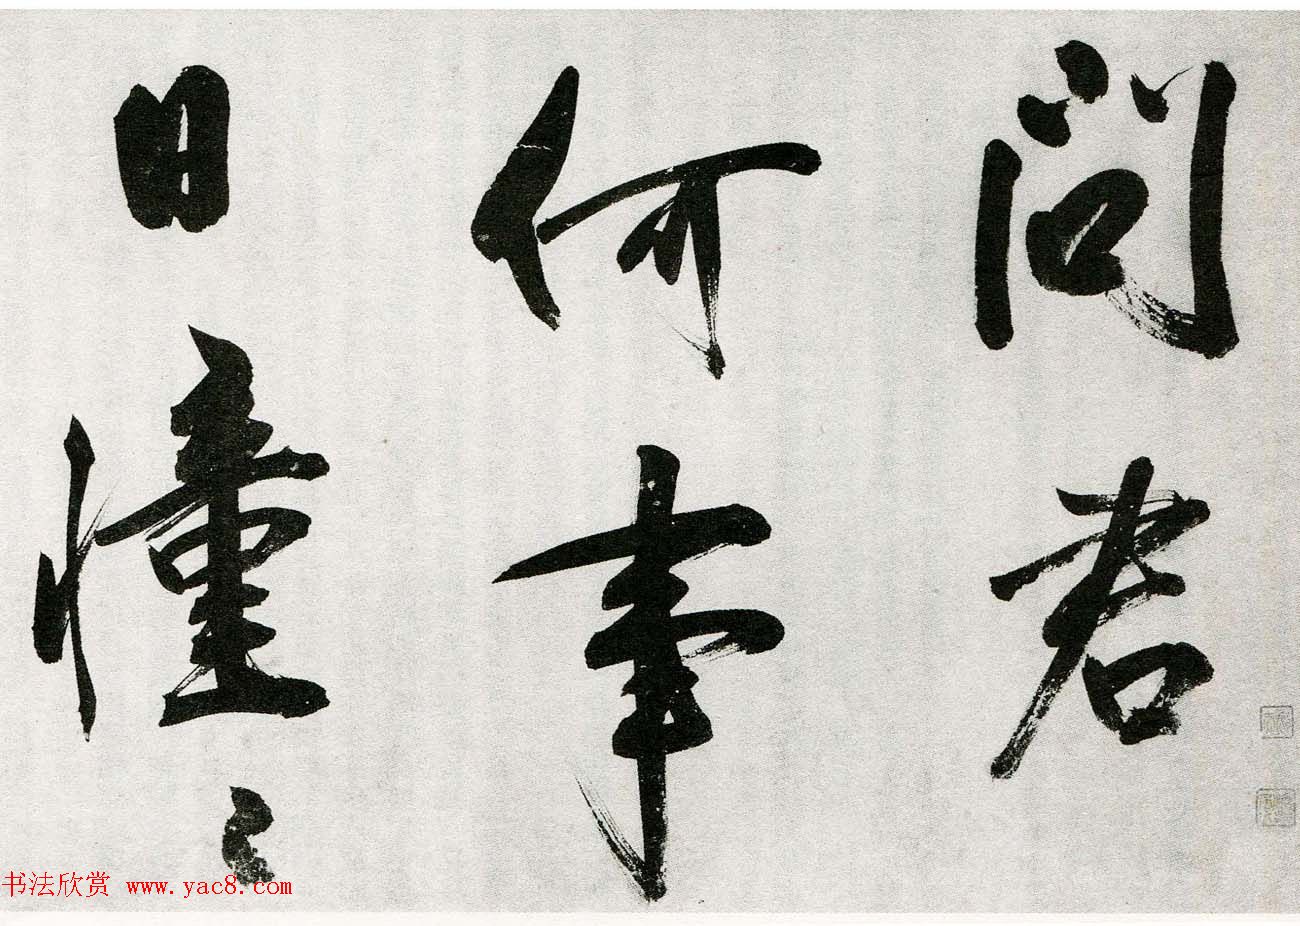 问君
何事
日憧〻
书法欣赏 www.yac8.com